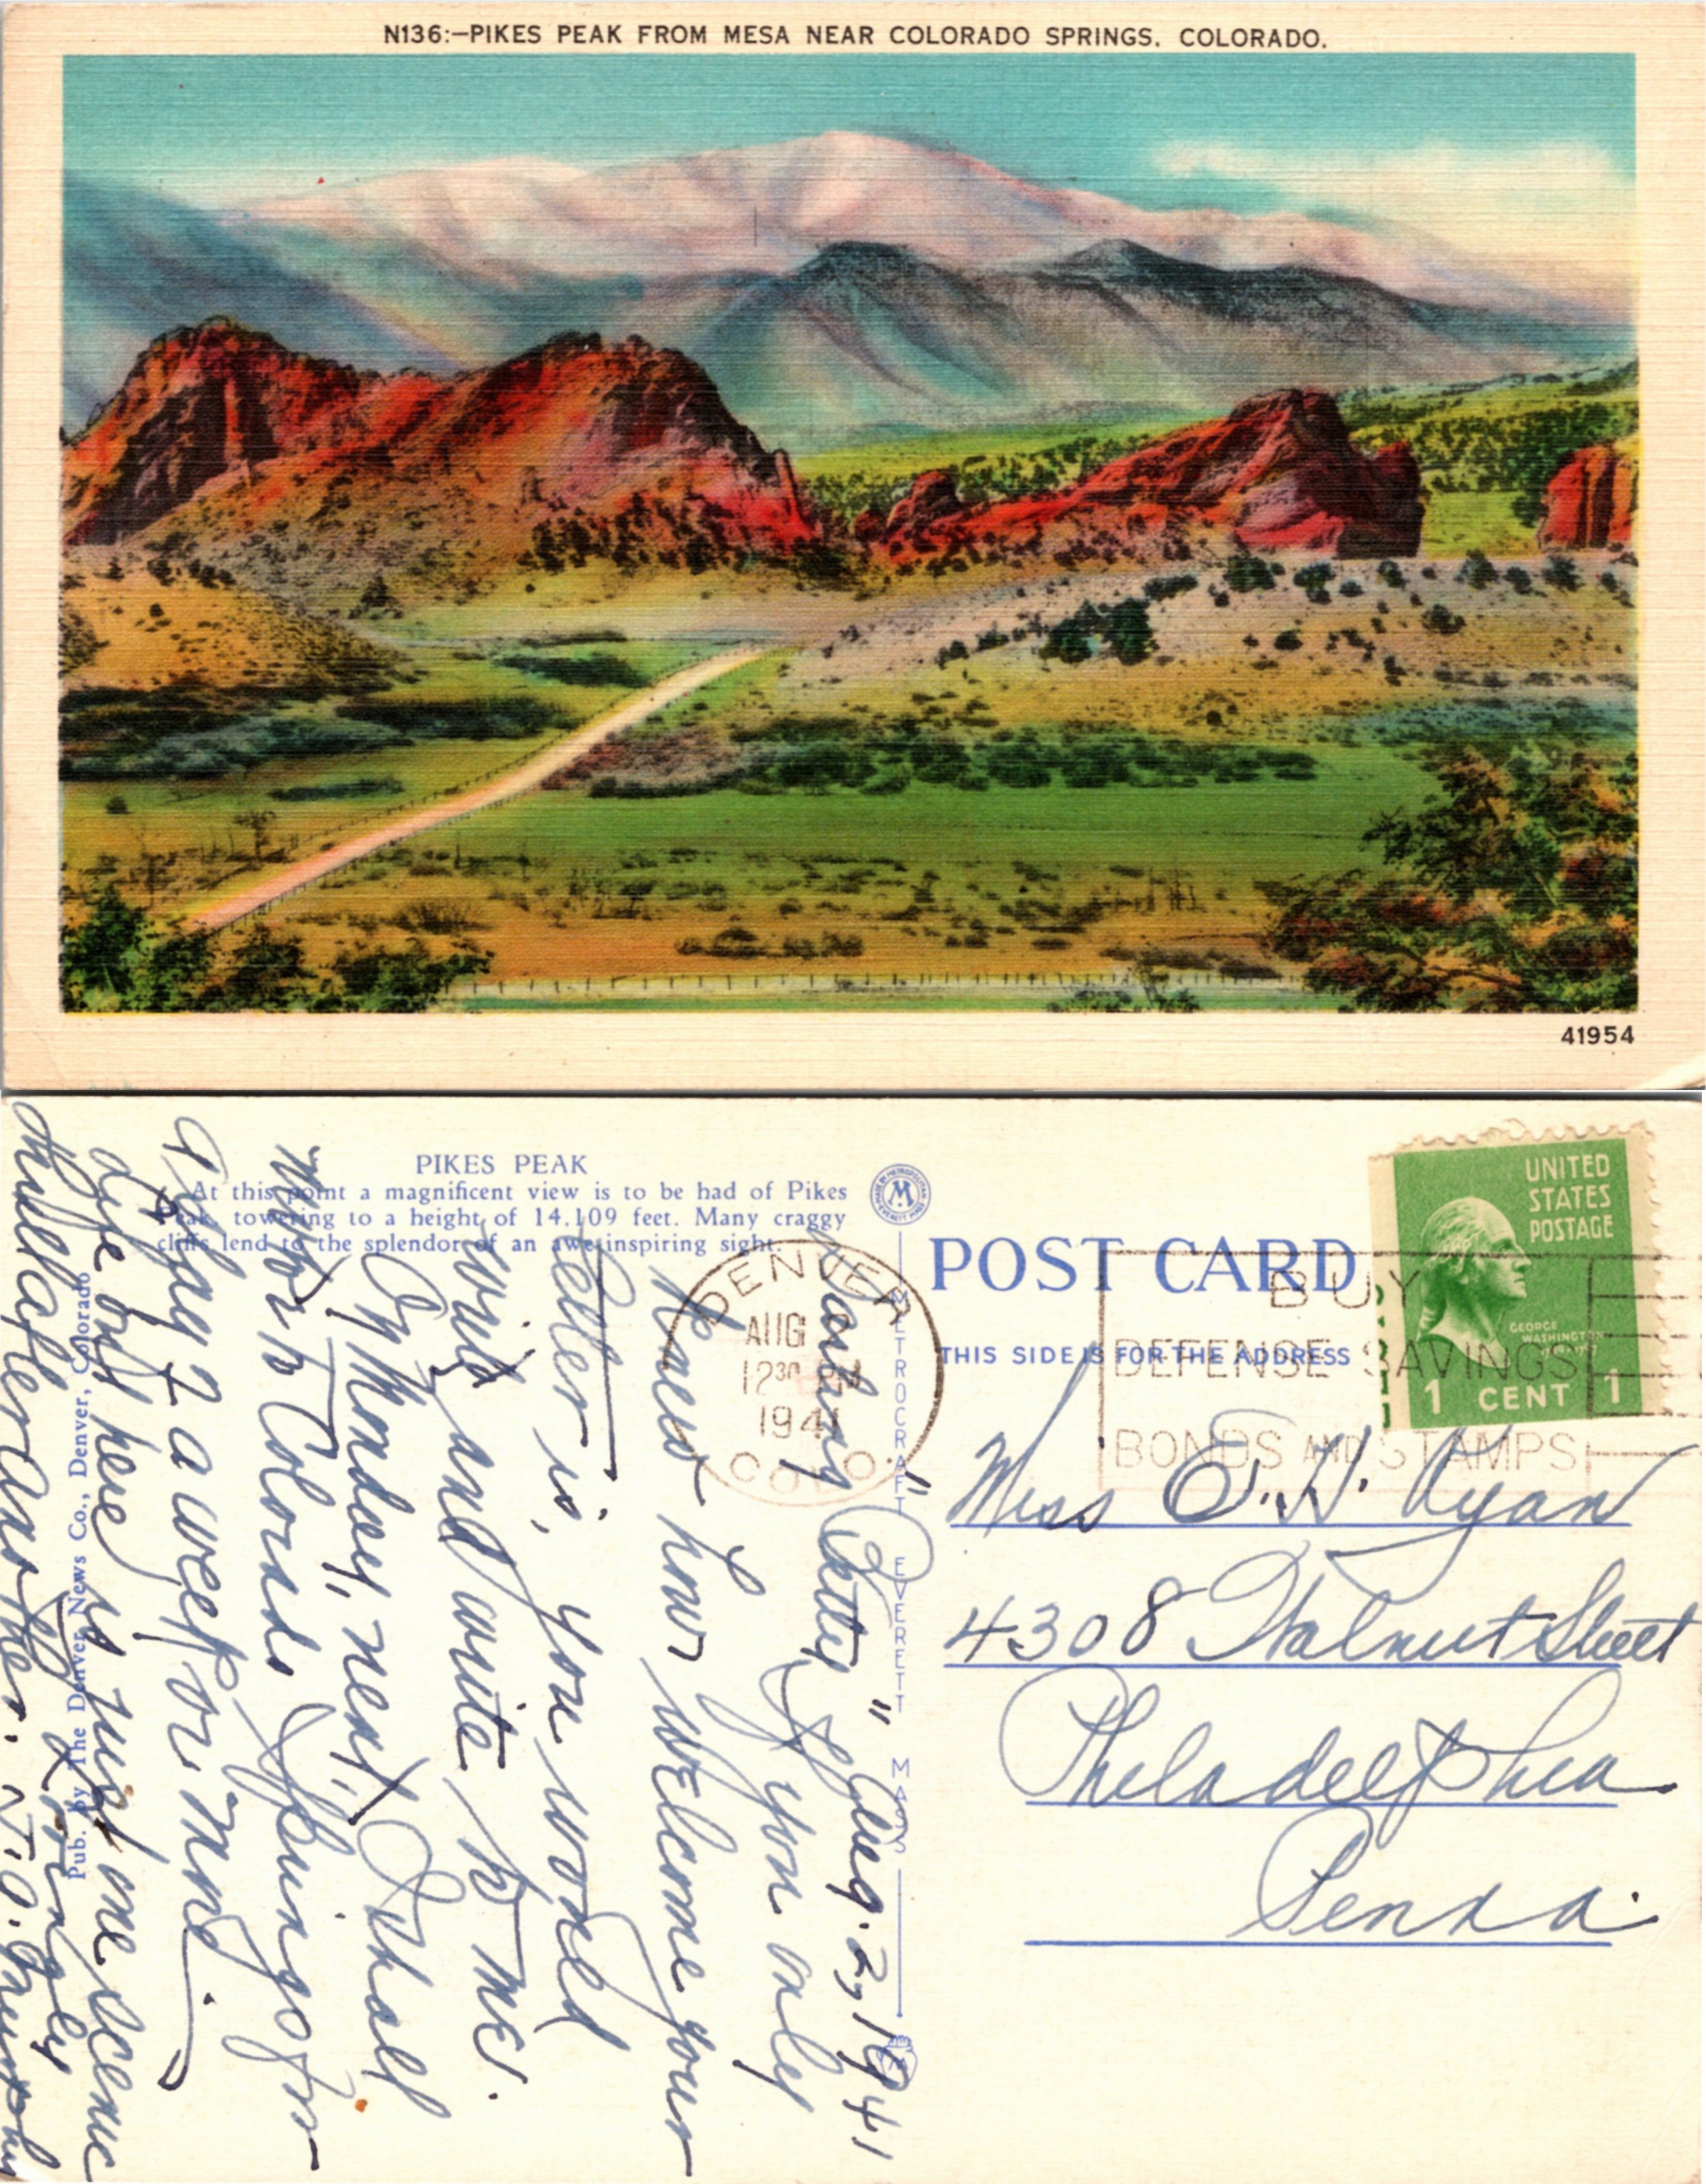 N136:—PIKES PEAK FROM MESA NEAR COLORADO SPRINGS, COLORADO.
41954
PIKES PEAK
At this point a magnificent view is to be had of Pikes
Peak, towering to a height of 14,109 feet. Many craggy
cliffs lend to the splendor of an awe-inspiring sight.
MADE BY METROPOLITAN
M
EVERETT MASS
POST CARD
THIS SIDE IS FOR THE ADDRESS
UNITED
STATES
POSTAGE
GEORGE
WASHINGTON
1 CENT 1
DENVER
AUG 2
12 30 PM
1941
COLO.
BUY
DEFENSE SAVINGS
BONDS AND STAMPS
METROCRAFT EVERETT MASS
Pub. by The Denver News Co., Denver, Colorado
Miss O. H. Ryan
4308 Walnut Street
Philadelphia
Penna.
" Betty " Aug. 2, 1941
If you only
knew how welcome your
letter is, you would
and write to me.
By Monday, next, I shall
Colorado Springs for
a week or more.
Life out here is just one scenic
thriller after another.
Lovingly